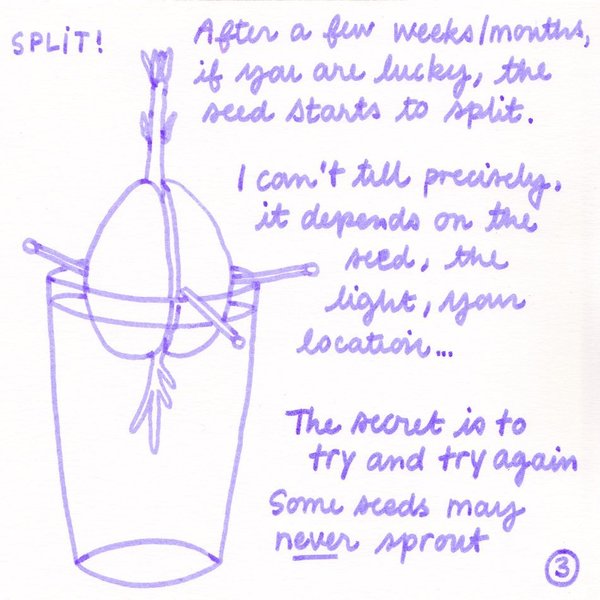 SPLiT!
After a few weeks/months,
if you are lucky, the
seed starts to split.
I can't till precisely,
it depends on the
seed, the
light, your
location...
The secret is to
try and try again
Some seeds may
never sprout
3